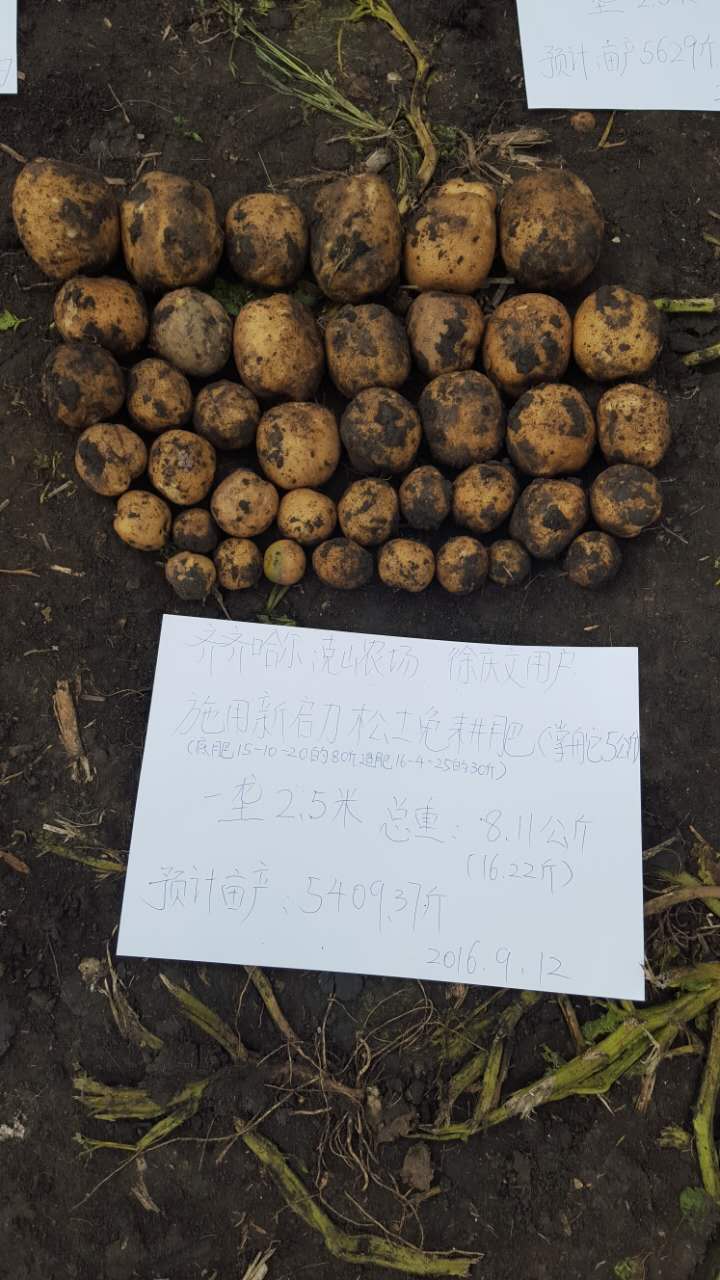 预计:亩产5629斤
齐齐哈尔 克山农场 徐庆文用户
施用新启力松土免耕肥(掌舵之5公斤
(底肥15-10-20的80斤追肥16-4-25的30斤)
一垄2.5米 总重:8.11公斤
(16.22斤)
预计亩产:5409.37斤
2016.9.12